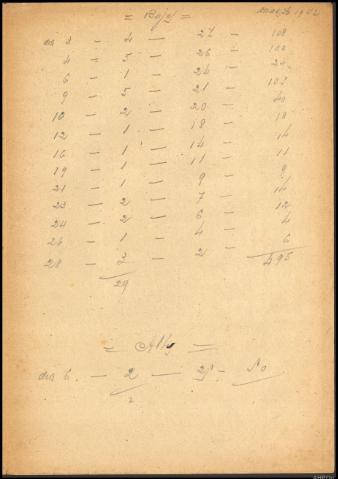 = =
3 — 4 — 27 — 108
4 = 5 — 26 — 130
6 — 1 — 24 — 24
9 — 5 — 21 — 105
10 — 2 — 20 — 40
12 — 1 — 18 — 18
16 — 1 — 14 — 14
19 — 1 — 11 — 11
21 — 1 — 9 — 9
23 — 2 — 7 — 14
24 — 2 — 6 — 12
26 — 1 — 4 — 4
28 — 3 — 2 — 6
29 495
= =
— 2 — 25 - 50